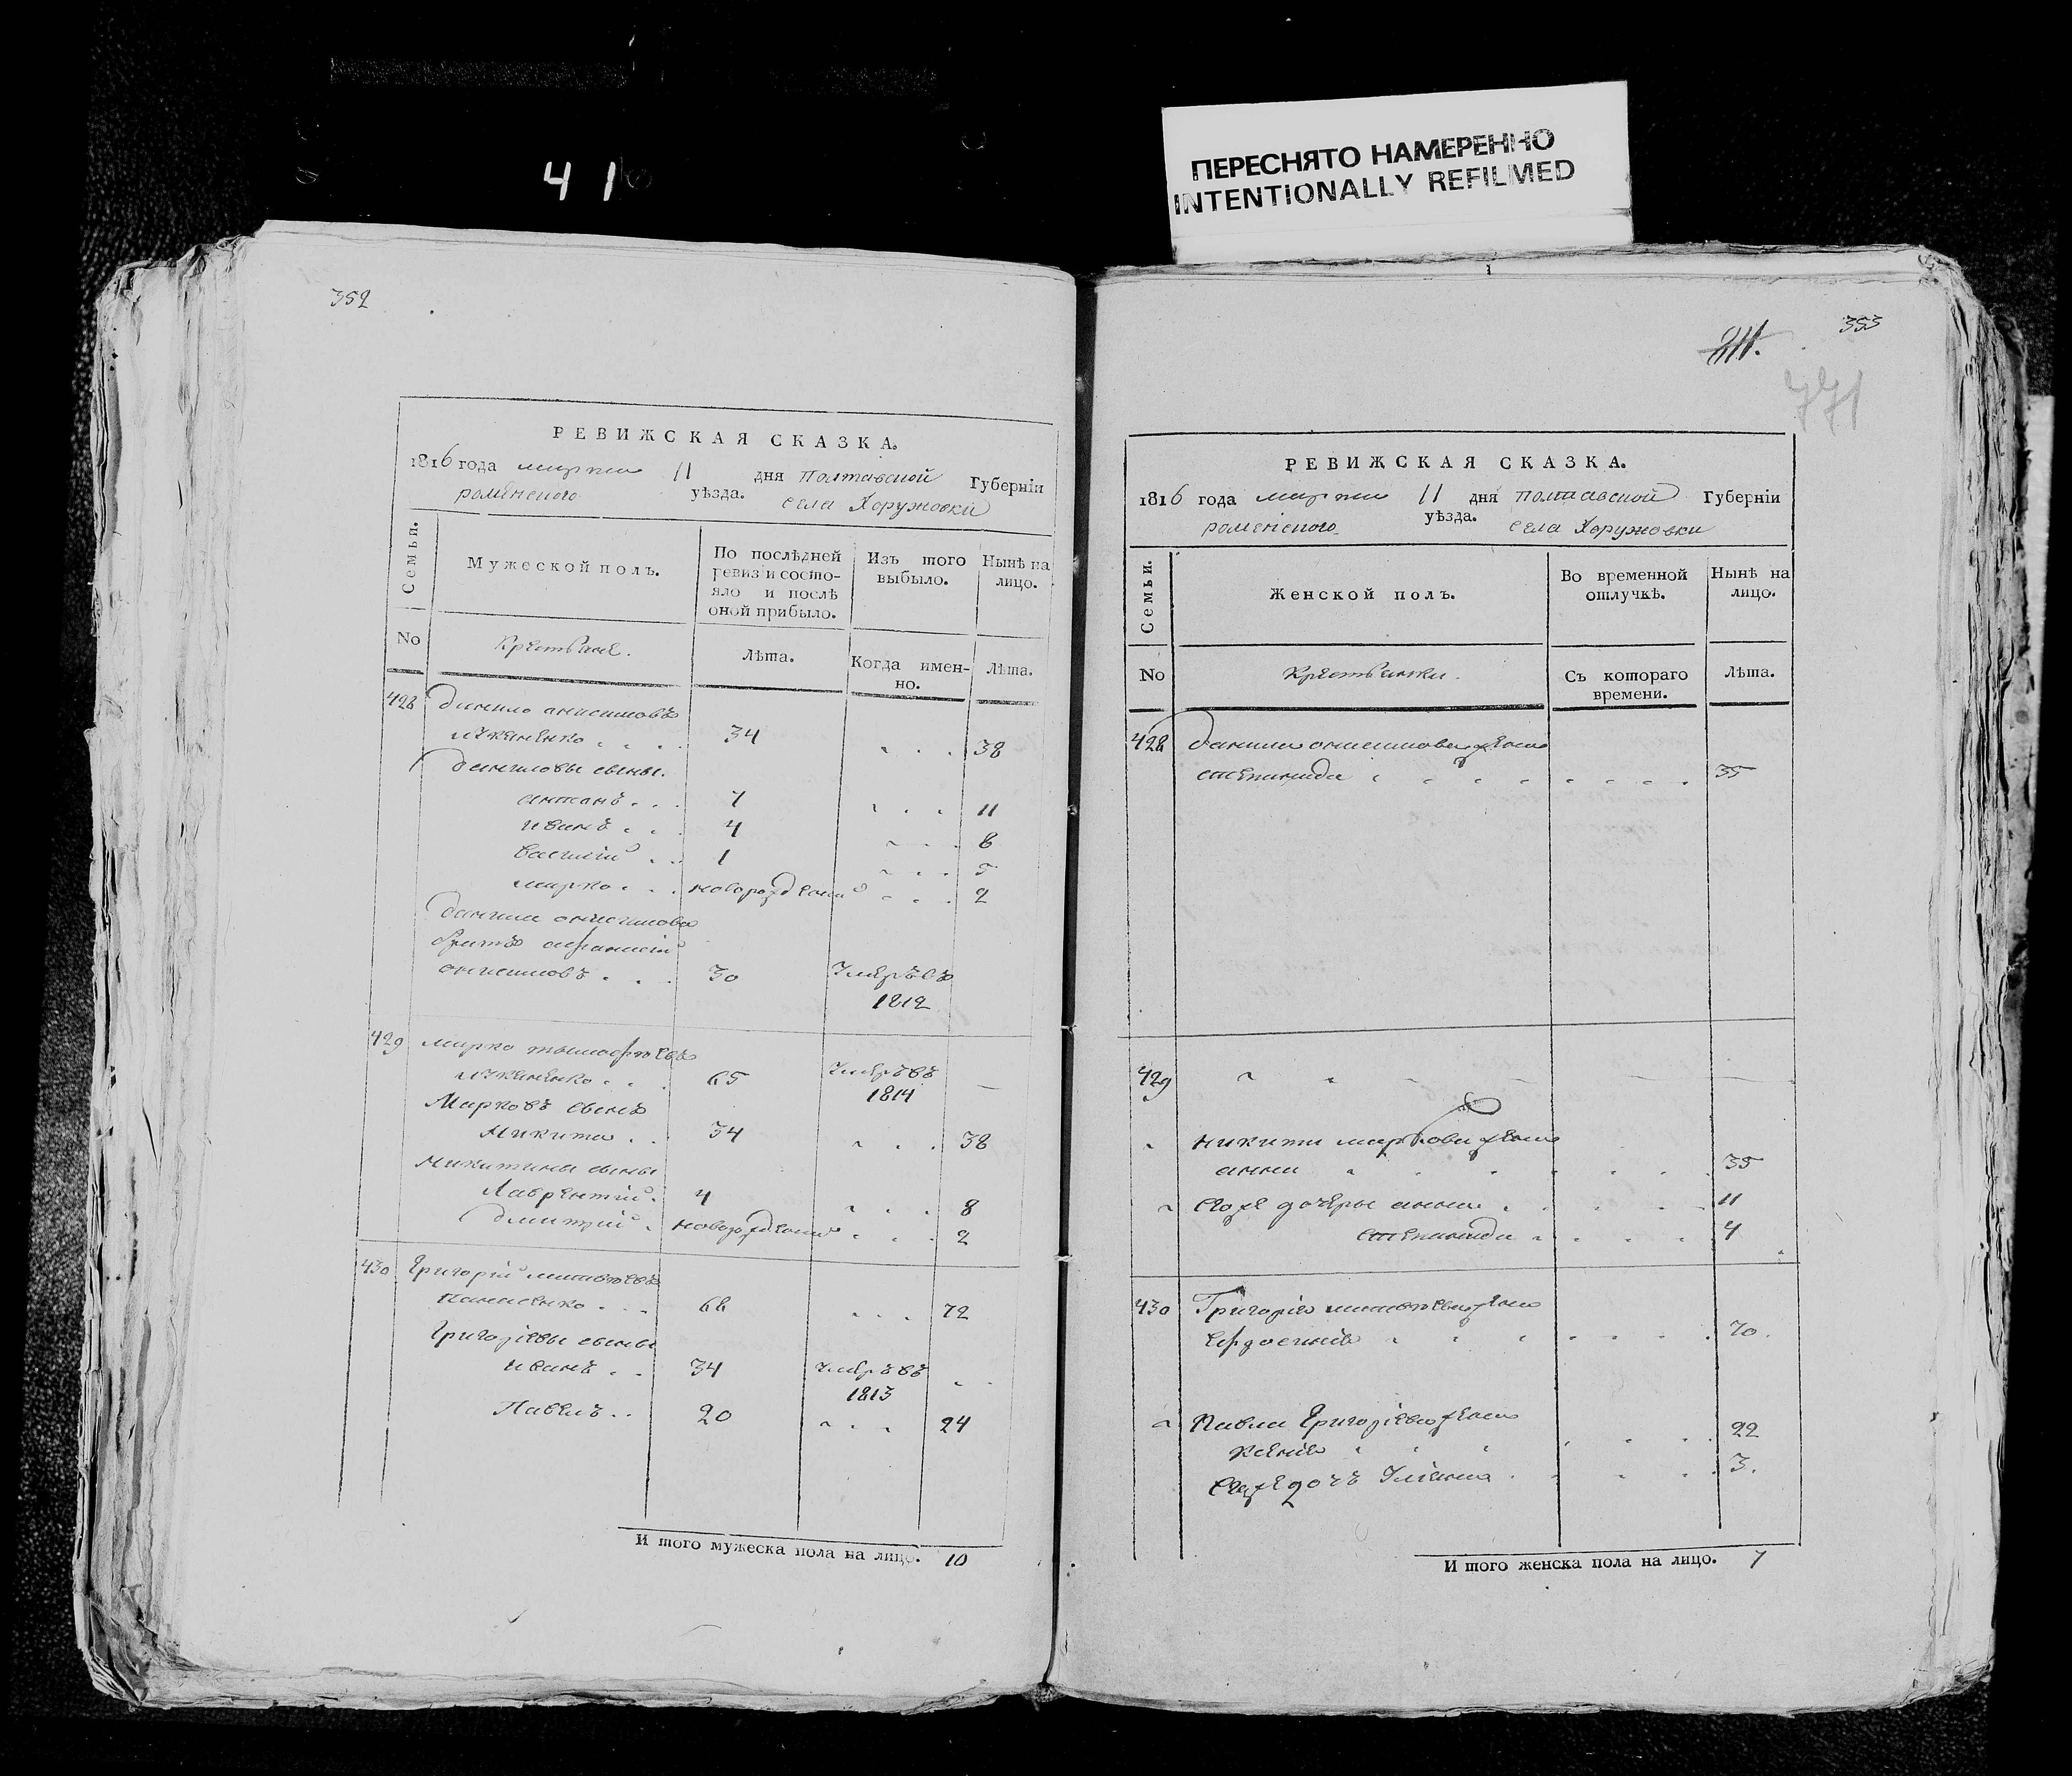 41
ПЕРЕСНЯТО НАМЕРЕННО
INTENTIONALLY REFILMED
352
РЕВИЖСКАЯ СКАЗКА.
1816 года марта 11 дня Полтавской Губернїи
роменского уѣзда. села Хоружовки
Семьи.
Мужеской полъ.
По послѣдней ревизїи состояло и послѣ оной прибыло.
Изъ того выбыло.
Нынѣ на лицо.
No
Крестьяне.
Лѣта.
Когда именно.
Лѣта.
428 данило анисимовъ
34 . . . 38
даниловы сыны.
антонъ . . . 7 . . . 11
иванъ . . 4 . . . 8
василий . . 1 . . . 5
марко . . . новорожденый . . . 2
данила анисимова
братъ афанасий
анисимовъ . . . 30 Умеръ въ
1812
429 марко тимофѣевъ
65 Умеръ въ —
1814
Марковъ сынъ
Микита . . 34 . . . 38
Микитины сыны
Лаврентий. 4 . . . 8
дмитрий . новорожденый . . . 2
430 Григорий матвѣевъ
Панасенко . . . 68 . . . 72
Григорїевы сыны
иванъ . . 34 умеръ въ . .
1813
Павелъ . . 20 . . . 24
И того мужеска пола на лицо. 10
353
211.
771
РЕВИЖСКАЯ СКАЗКА.
1816 года марта 11 дня полтавской Губернїи
роменского уѣзда. села Хоружовки
Семьи.
Женской полъ.
Во временной отлучкѣ.
Нынѣ на лицо.
No
Крестьянки.
Съ котораго времени.
Лѣта.
428 данила анисимова жена
степанида . . . . . . . . 35
429
никити маркова жена
анна . . . . . . . 35
Егоже дочеры анна . . . . . 11
степанида . . . . . 4
430 Григорїя матвѣева жена
Евдокия . . . . . . . 70.
Павла Григорїева жена
Ксения . . . . . . 22
Егоже дочь Улїяна . . . . . 3.
И того женска пола на лицо. 7